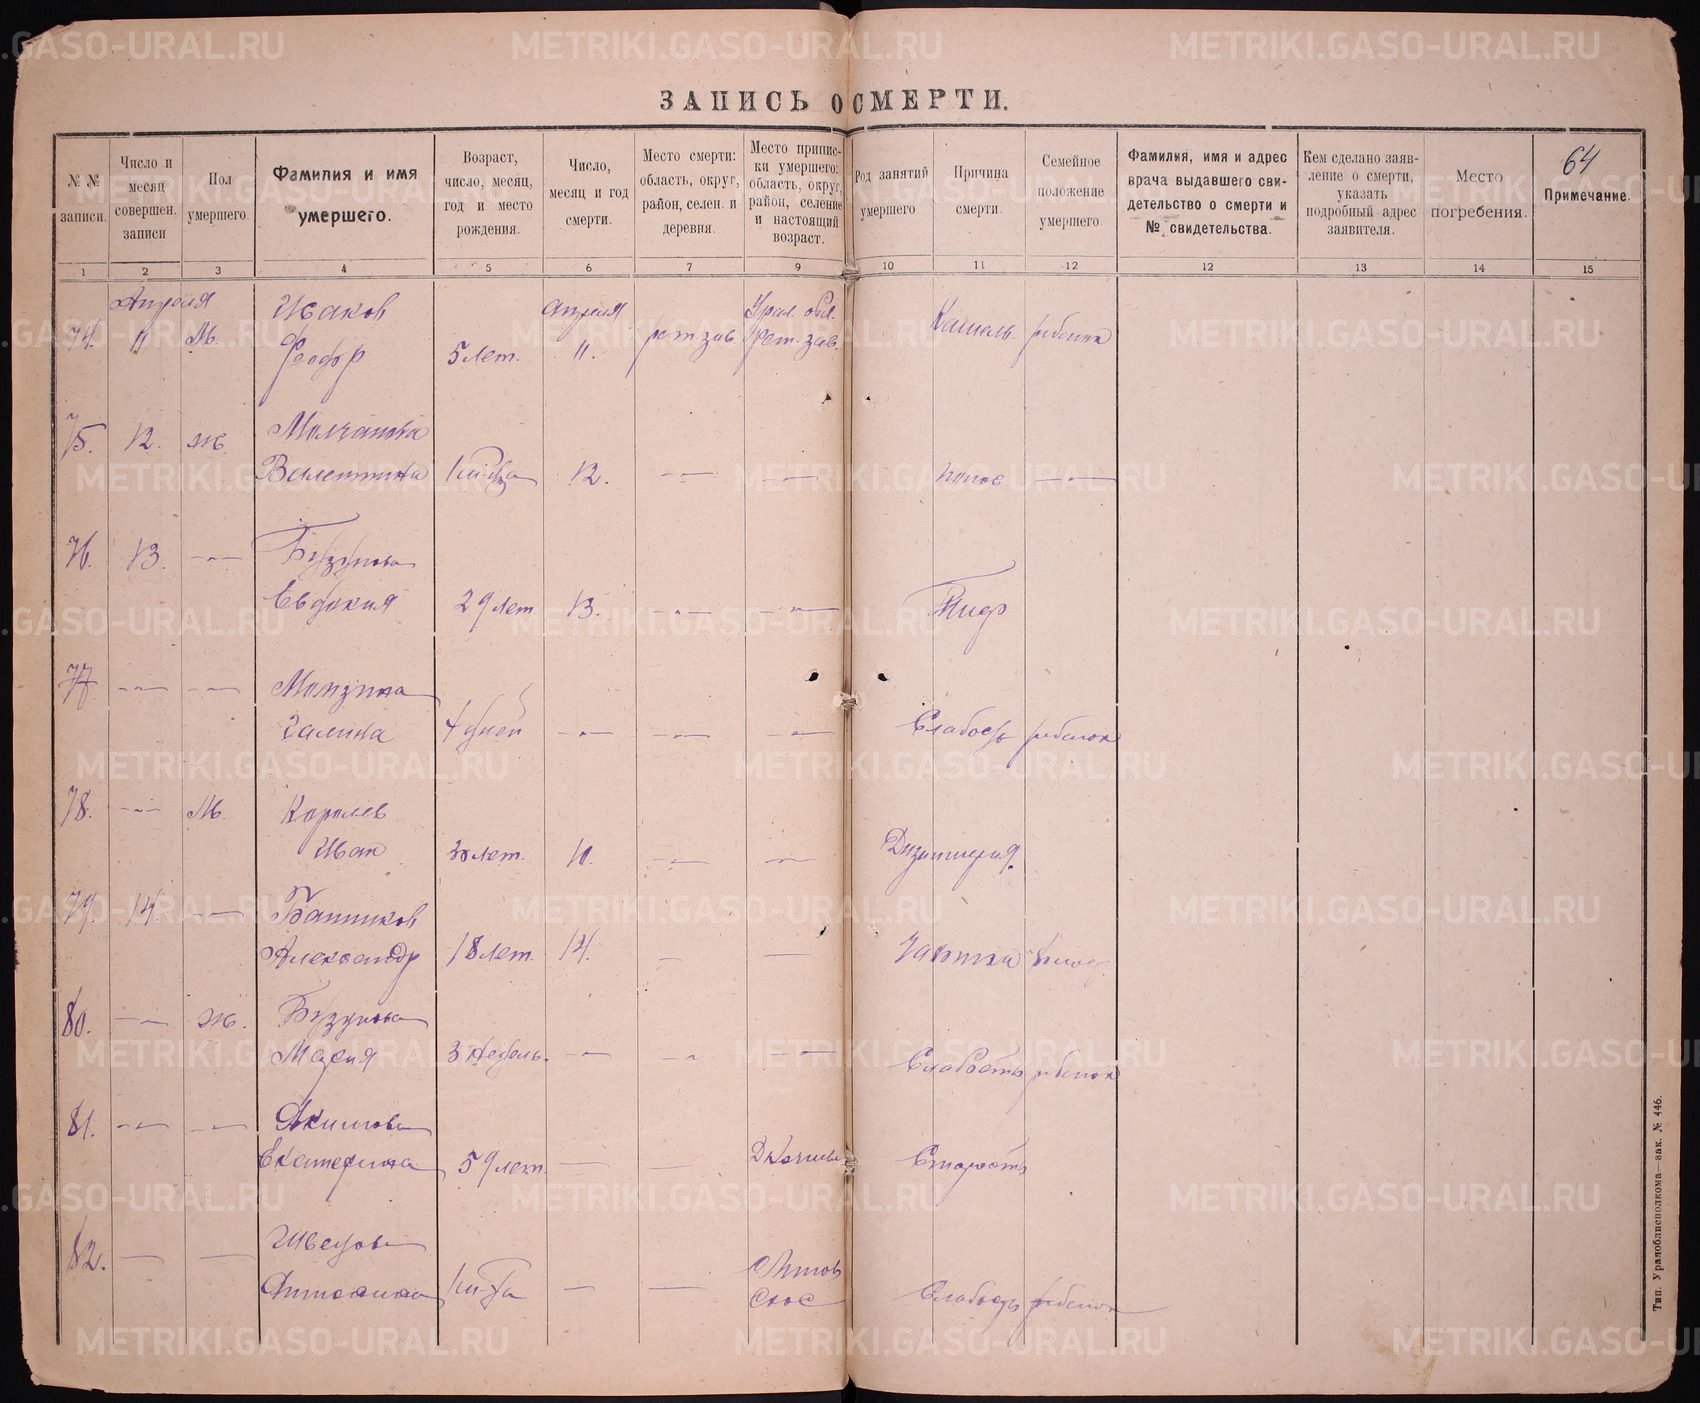 ЗАПИСЬ О СМЕРТИ.
64
№ № записи.
Число и месяц совершен. записи
Пол умершего.
Фамилия и имя умершего.
Возраст, число, месяц, год и место рождения.
Число, месяц и год смерти.
Место смерти: область, округ, район, селен. и деревня.
Место приписки умершего: область, округ, район, селение и настоящий возраст.
Род занятий умершего
Причина смерти.
Семейное положение умершего.
Фамилия, имя и адрес врача выдавшего свидетельство о смерти и № свидетельства.
Кем сделано заявление о смерти, указать подробный адрес заявителя.
Место погребения.
Примечание.
1 2 3 4 5 6 7 9 10 11 12 12 13 14 15
Апреля Исаков апреля Урал. обл.
74. 11 М. Феодор 5 лет. 11. Рет. зав. Рет. зав. Кашель ребенок
75. 12. ж. Молчанова
Валентина 12. —"— —"— понос —"—
76. 13. —"— Бузунова
Евдокия 29 лет 13. —"— —"— Тиф
77. —"— —"—
Галина 4 дней —"— —"— —"— Слабость ребенок
78. —"— М. Королев
Иван 30 лет. 10. —"— —"—
79. 14. —"—
Александр 18 лет. 14. — —
80. —"— ж. Бузунова
Мария 3 недель. —"— —"— —"— Слабость ребенок
81. —"— —"— Акимова
Екатерина 59 лет. — — Старость
82. — — Швецова
Антонина — — Слабость ребенок
Тип. Уралоблисполкома—зак. № 446.
METRIKI.GASO-URAL.RU